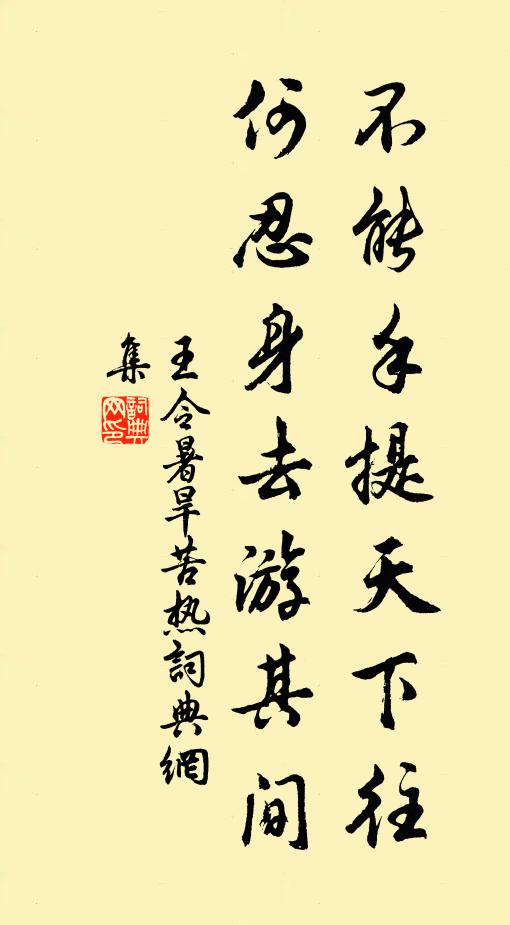 不能手提天下往
何忍身去游其间
王令暑旱苦热詞典網
集
詞典
网印